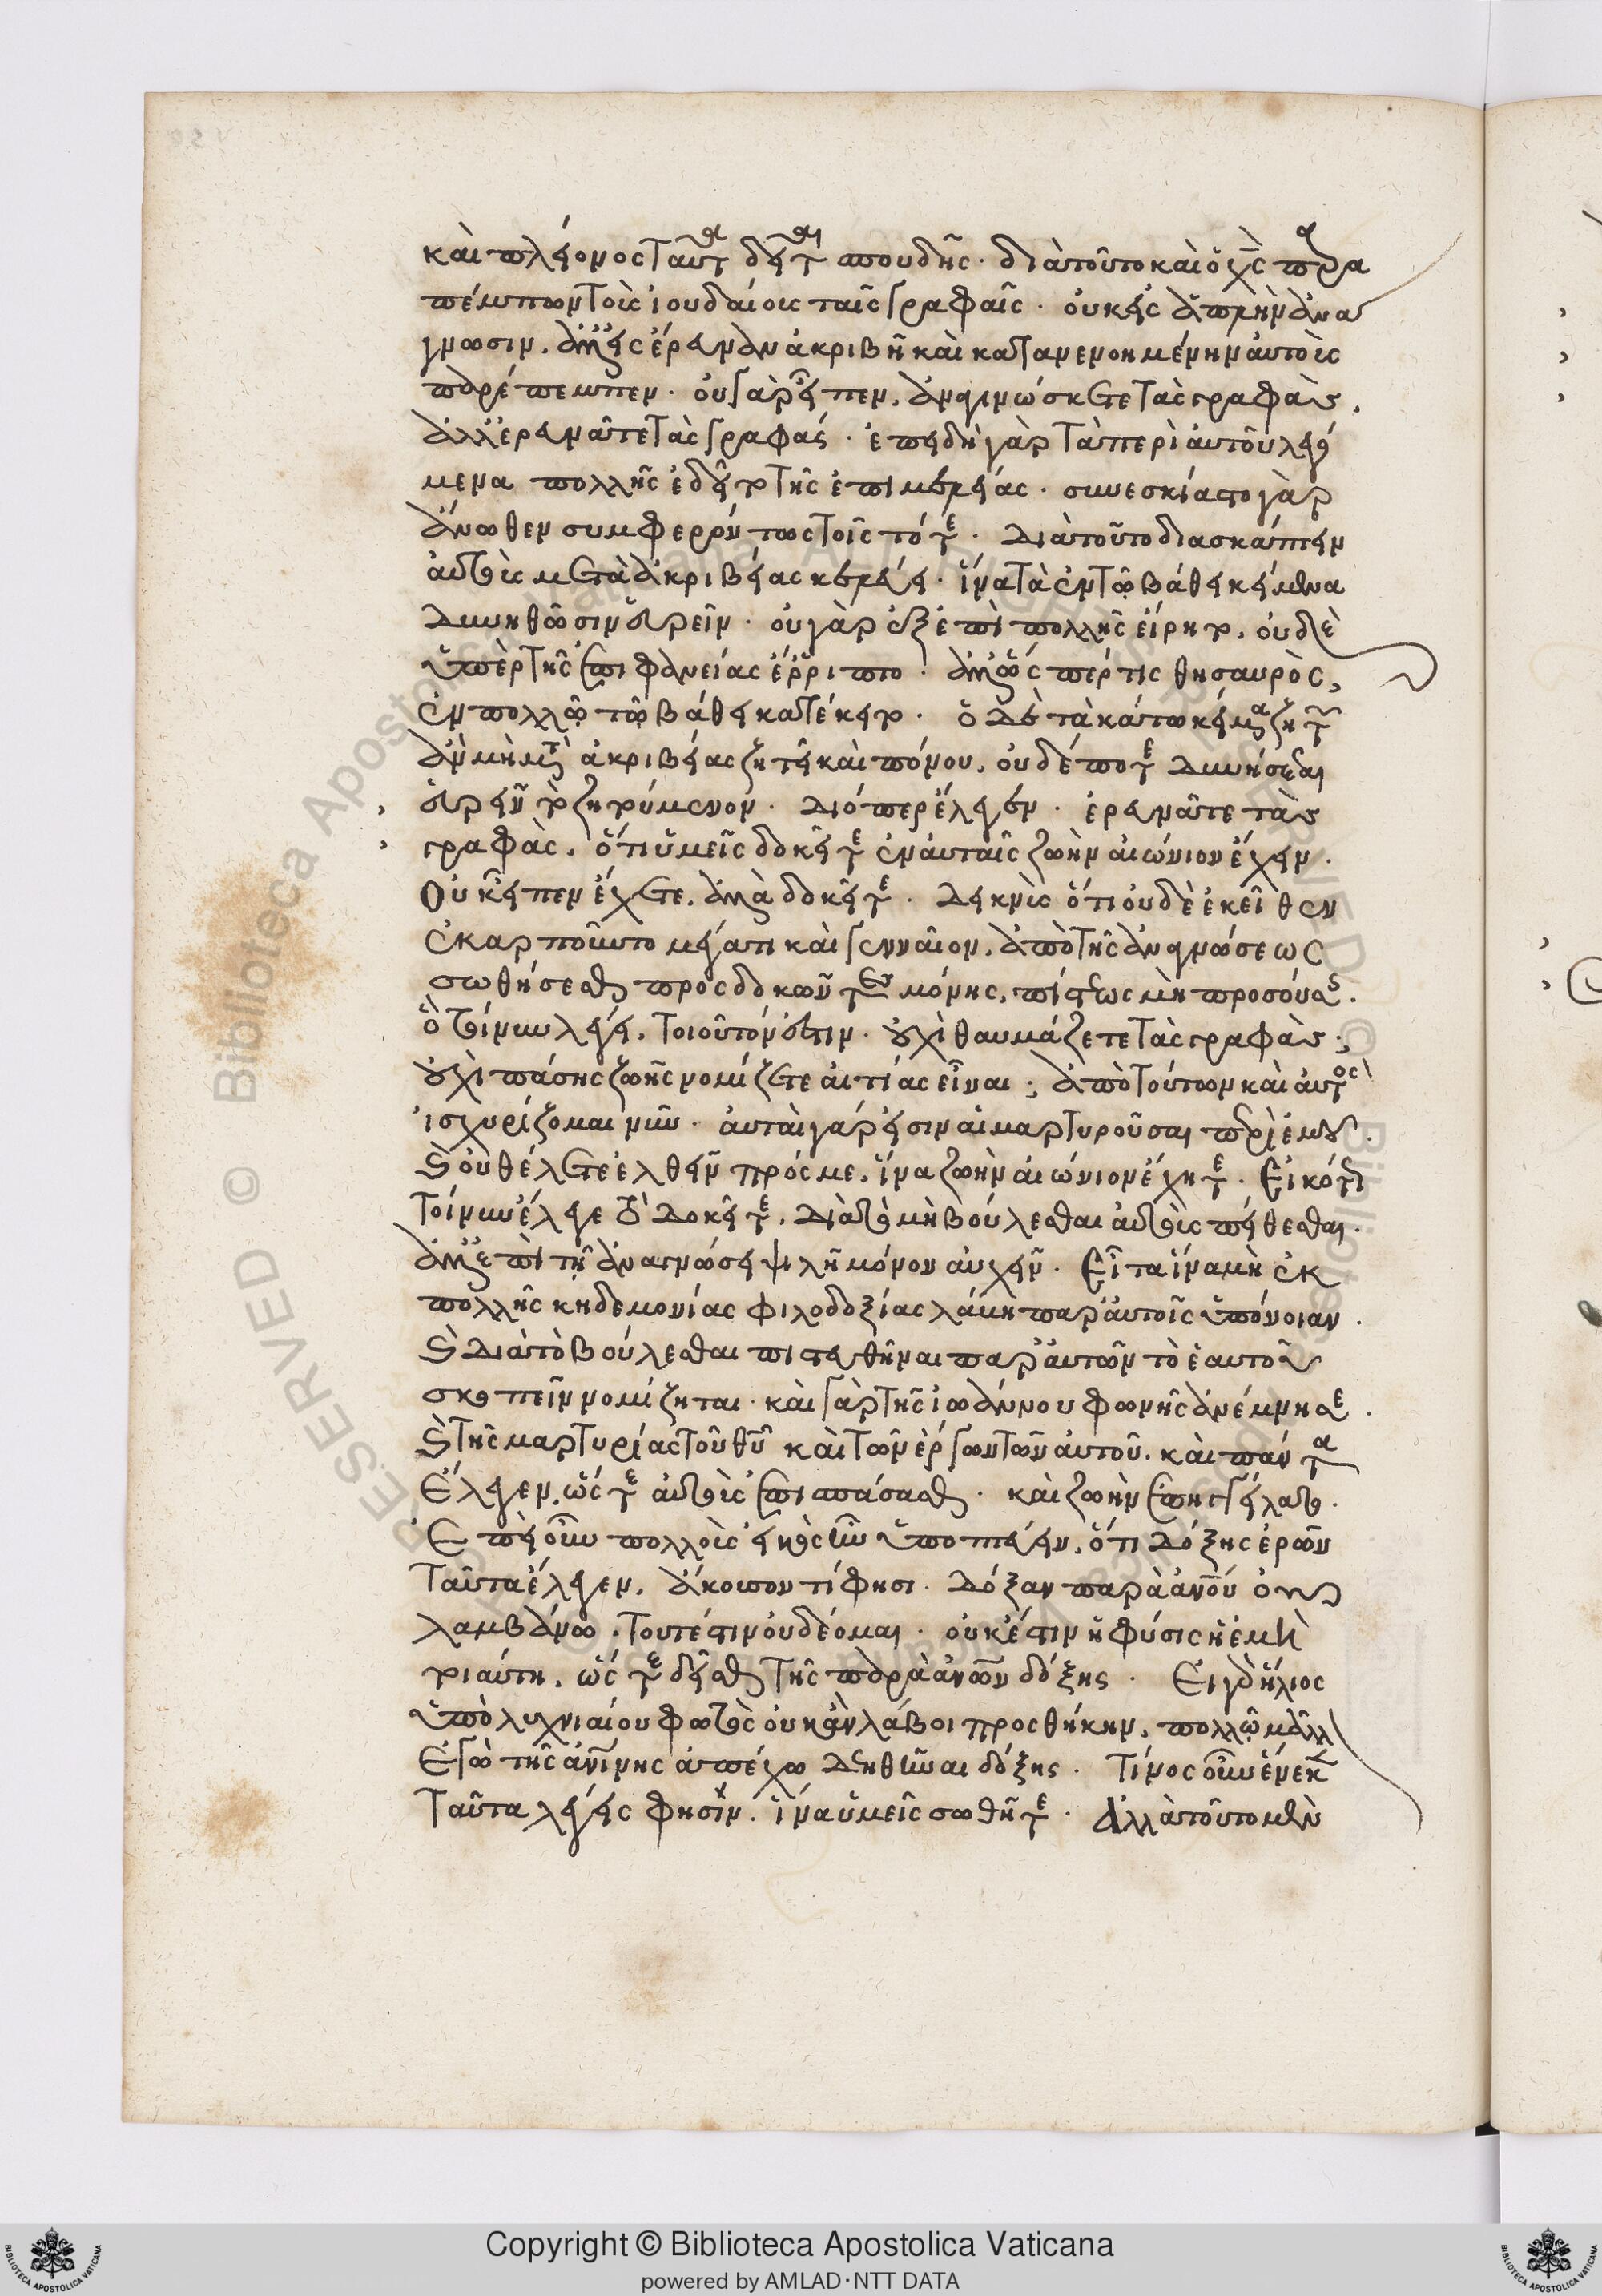 καὶ πλείονος ταῦτα δεῖται σπουδῆς · διὰ τοῦτο καὶ ὁ χς παρα
πέμπων τοῖς ἰουδαίοις ταῖς γραφαῖς · οὐκ εἰς ἁπλὴν ἀνά
γνωσιν, ἀλλ' εἰς ἔρευναν ἀκριβῆ καὶ κατανενοημένην αὐτοὺς
παρέπεμπεν · οὐ γὰρ εἶπεν, ἀναγινώσκετε τὰς γραφὰς,
ἀλλ' ἐρευνᾶτε τὰς γραφάς · ἐπειδὴ γὰρ τὰ περὶ αὐτοῦ λεγό
μενα πολλῆς ἐδεῖτο τῆς ἐπιμελείας · συνεσκίαστο γὰρ
ἄνωθεν συμφερόντως τοῖς τότε · Διὰ τοῦτο διασκάπτειν
αὐτοὺς μετὰ ἀκριβείας κελεύει · ἵνα τὰ ἐν τῷ βάθει κείμενα
δυνηθῶσιν εὑρεῖν · οὐ γὰρ ἐξ ἐπιπολῆς εἴρητο, οὐδὲ
ὑπὲρ τῆς ἐπιφανείας ἔρριπτο · ἀλλ' ὥσπερ τις θησαυρὸς,
ἐν πολλῷ τῷ βάθει κατέκειτο · ὁ δὲ τὰ κάτω κείμενα ζητῶν
ἂν μὴ μετὰ ἀκριβείας ζητῇ καὶ πόνου, οὐδέποτε δυνήσεται
εὑρεῖν τὸ ζητούμενον · Διόπερ ἔλεγεν · ἐρευνᾶτε τὰς
γραφὰς, ὅτι ὑμεῖς δοκεῖτε ἐν αὐταῖς ζωὴν αἰώνιον ἔχειν ·
Οὐκ εἶπεν ἔχετε, ἀλλὰ δοκεῖτε · Δεικνὺς ὅτι οὐδὲ ἐκεῖθεν
ἐκαρποῦντο μέγα τι καὶ γενναῖον, ἀπὸ τῆς ἀναγνώσεως
σωθήσεσθαι προσδοκῶντες μόνης, πίστεως μὴ προσούσης ·
ὃ τοίνυν λέγει, τοιοῦτόν ἐστιν · οὐχὶ θαυμάζετε τὰς γραφὰς ;
οὐχὶ πάσης ζωῆς νομίζετε αἰτίας εἶναι ; ἀπὸ τούτων καὶ αὐτὸς
ἰσχυρίζομαι νῦν · αὐταὶ γάρ εἰσιν αἱ μαρτυροῦσαι περὶ ἐμοῦ ·
καὶ οὐ θέλετε ἐλθεῖν πρός με, ἵνα ζωὴν αἰώνιον ἔχητε · Εἰκότως
τοίνυν ἔλεγε τὸ δοκεῖτε, διὰ τὸ μὴ βούλεσθαι αὐτοὺς πείθεσθαι ·
ἀλλ' ἐπὶ τῇ ἀναγνώσει ψιλῇ μόνον αὐχεῖν · Εἶτα ἵνα μὴ ἐκ
πολλῆς κηδεμονίας φιλοδοξίας λάβῃ παρ' αὐτοῖς ὑπόνοιαν ·
καὶ διὰ τὸ βούλεσθαι πιστευθῆναι παρ' αὐτῶν τὸ ἑαυτοῦ
σκοπεῖν νομίζηται · καὶ γὰρ τῆς ἰωάννου φωνῆς ἀνέμνησε ·
καὶ τῆς μαρτυρίας τοῦ θυ καὶ τῶν ἔργων τῶν αὐτοῦ · καὶ πάντα
ἔλεγεν, ὥστε αὐτοὺς ἐπισπάσασθαι · καὶ ζωὴν ἐπηγγείλατο ·
Ἐπεὶ οὖν πολλοὺς εἰκὸς ἦν ὑποπτεύειν, ὅτι δόξης ἐρῶν
ταῦτα ἔλεγεν, ἄκουσον τί φησι · Δόξαν παρὰ ἀνου οὐ
λαμβάνω · τουτέστιν οὐ δέομαι · οὐκ ἔστιν ἡ φύσις ἡ ἐμὴ
τοιαύτη, ὥστε δεῖσθαι τῆς παρὰ ἀνων δόξης · Εἰ γὰρ ἥλιος
ὑπὸ λυχνιαίου φωτὸς οὐκ ἂν λάβοι προσθήκην, πολλῷ μᾶλλον
ἐγὼ τῆς ἀνίνης ἀπέχω δεηθῆναι δόξης · Τίνος οὖν ἕνεκεν
ταῦτα λέγεις φησίν, ἵνα ὑμεῖς σωθῆτε · Ἀλλὰ τοῦτο μὲν
Copyright © Biblioteca Apostolica Vaticana
powered by AMLAD·NTT DATA